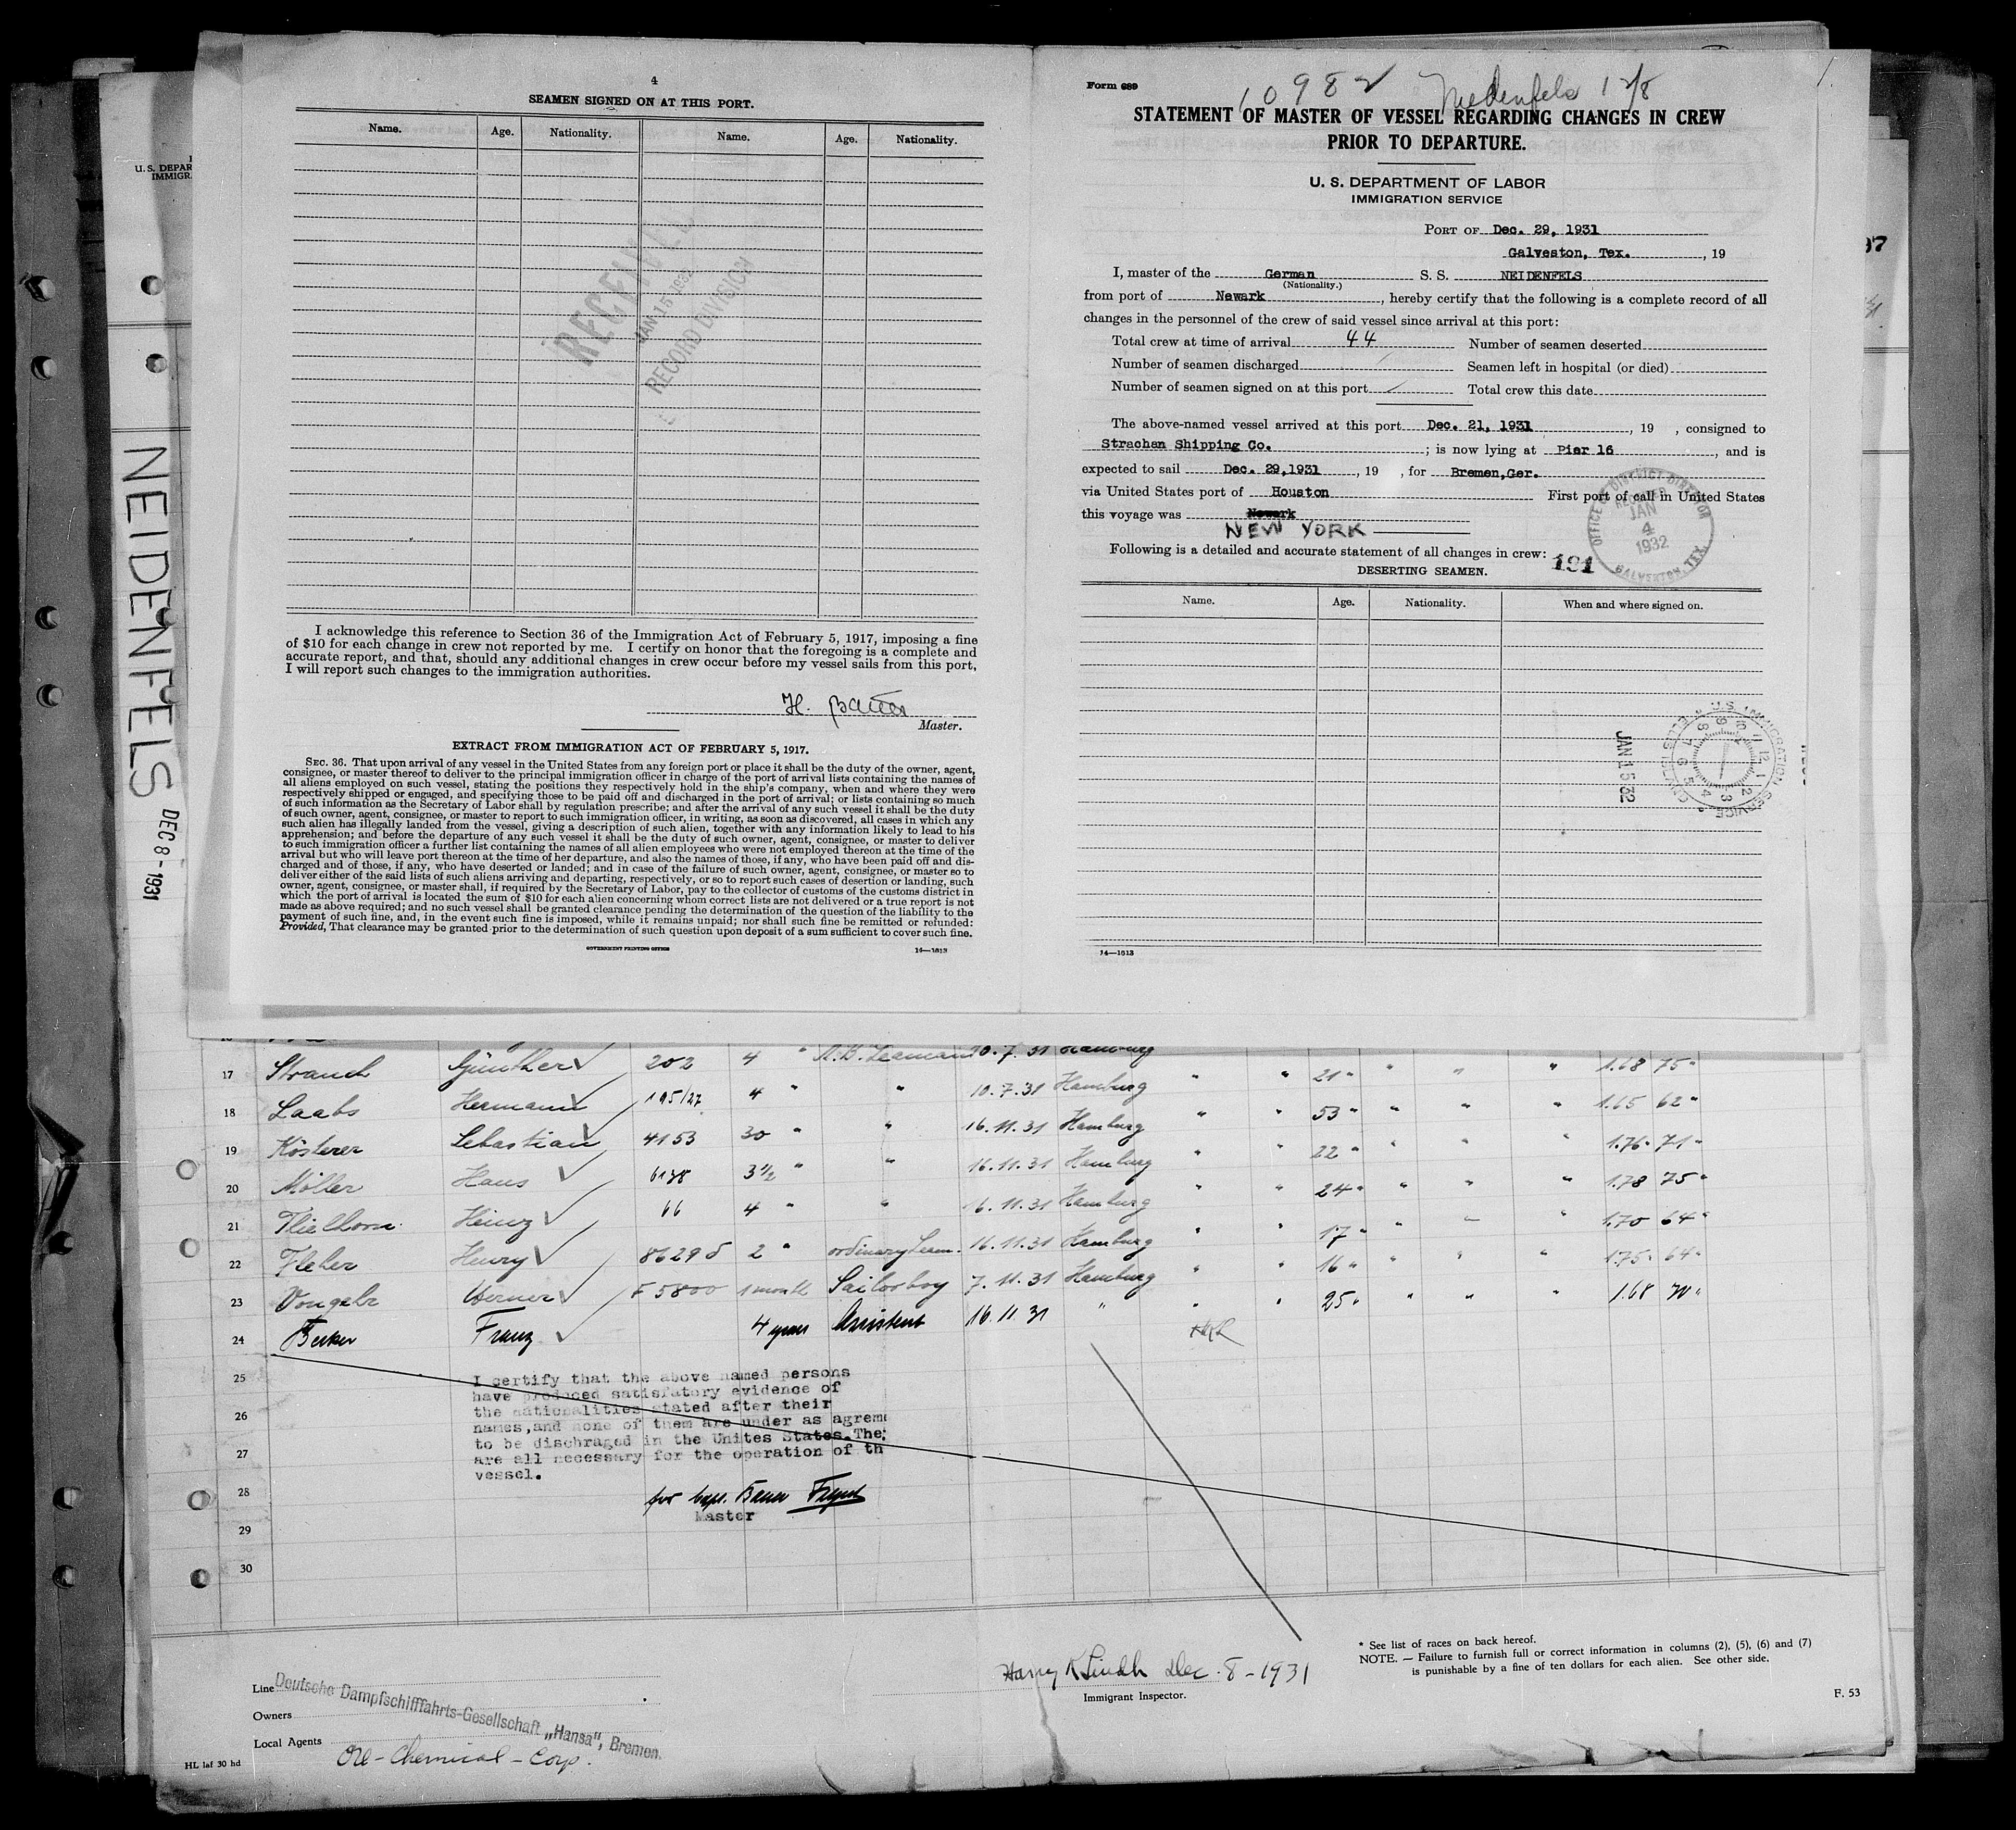 4
SEAMEN SIGNED ON AT THIS PORT.
Name. Age. Nationality. Name. Age. Nationality.
RECEIVED
JAN 15 1932
RECORD DIVISION
I acknowledge this reference to Section 36 of the Immigration Act of February 5, 1917, imposing a fine
of $10 for each change in crew not reported by me. I certify on honor that the foregoing is a complete and
accurate report, and that, should any additional changes in crew occur before my vessel sails from this port,
I will report such changes to the immigration authorities.
H. Bauer
Master.
EXTRACT FROM IMMIGRATION ACT OF FEBRUARY 5, 1917.
SEC. 36. That upon arrival of any vessel in the United States from any foreign port or place it shall be the duty of the owner, agent,
consignee, or master thereof to deliver to the principal immigration officer in charge of the port of arrival lists containing the names of
all aliens employed on such vessel, stating the positions they respectively hold in the ship's company, when and where they were
respectively shipped or engaged, and specifying those to be paid off and discharged in the port of arrival; or lists containing so much
of such information as the Secretary of Labor shall by regulation prescribe; and after the arrival of any such vessel it shall be the duty
of such owner, agent, consignee, or master to report to such immigration officer, in writing, as soon as discovered, all cases in which any
such alien has illegally landed from the vessel, giving a description of such alien, together with any information likely to lead to his
apprehension; and before the departure of any such vessel it shall be the duty of such owner, agent, consignee, or master to deliver
to such immigration officer a further list containing the names of all alien employees who were not employed thereon at the time of the
arrival but who will leave port thereon at the time of her departure, and also the names of those, if any, who have been paid off and dis-
charged and of those, if any, who have deserted or landed; and in case of the failure of such owner, agent, consignee, or master so to
deliver either of the said lists of such aliens arriving and departing, respectively, or so to report such cases of desertion or landing, such
owner, agent, consignee, or master shall, if required by the Secretary of Labor, pay to the collector of customs of the customs district in
which the port of arrival is located the sum of $10 for each alien concerning whom correct lists are not delivered or a true report is not
made as above required; and no such vessel shall be granted clearance pending the determination of the question of the liability to the
payment of such fine, and, in the event such fine is imposed, while it remains unpaid; nor shall such fine be remitted or refunded:
Provided, That clearance may be granted prior to the determination of such question upon deposit of a sum sufficient to cover such fine.
GOVERNMENT PRINTING OFFICE 14—1513
Form 689
10982 Neidenfels 12/8
STATEMENT OF MASTER OF VESSEL REGARDING CHANGES IN CREW
PRIOR TO DEPARTURE.
U. S. DEPARTMENT OF LABOR
IMMIGRATION SERVICE
PORT OF Dec. 29, 1931
Galveston, Tex. , 19
I, master of the German S. S. NEIDENFELS
(Nationality.)
from port of Newark , hereby certify that the following is a complete record of all
changes in the personnel of the crew of said vessel since arrival at this port:
Total crew at time of arrival 44 Number of seamen deserted
Number of seamen discharged Seamen left in hospital (or died)
Number of seamen signed on at this port Total crew this date
The above-named vessel arrived at this port Dec. 21, 1931 , 19 , consigned to
Strachan Shipping Co. ; is now lying at Pier 16 , and is
expected to sail Dec. 29,1931 , 19 , for Bremen,Ger.
via United States port of Houston First port of call in United States
this voyage was Newark
NEW YORK
OFFICE OF DISTRICT DIRECTOR
RECEIVED
JAN
4
1932
GALVESTON, TEX.
Following is a detailed and accurate statement of all changes in crew: 191
DESERTING SEAMEN.
Name. Age. Nationality. When and where signed on.
U.S. IMMIGRATION SERVICE
JAN 15 32
14—1513
U. S. DEPAR
IMMIGR
NEIDENFELS DEC 8 - 1931
37
17 Strauch Günther 202 4 " A.B. Seaman 10.7.31 Hamburg " " 21 " " " " 1.68 75 "
18 Laabs Hermann 195/27 4 " " 10.7.31 Hamburg " " 53 " " " " 1.65 62 "
19 Kösterer Sebastian 4153 30 " " 16.11.31 Hamburg " " 22 " " " " 1.76 71 "
20 Möller Hans 6138 3½ " " 16.11.31 Hamburg " " 24 " " " " 1.78 75 "
21 Thielhorn Heinz 66 4 " " 16.11.31 Hamburg " " 17 " " " " 1.70 64 "
22 Fleher Henry 86295 2 " ordinary Seam. 16.11.31 Hamburg " " 16 " " " " 1.75 64 "
23 Vongehr Werner F 5800 1 month Sailorboy 7.11.31 Hamburg " " 25 " " " " 1.68 70 "
24 Becker Franz 4 years Assistent 16.11.31 "
25
26
27
28
29
30
I certify that the above named persons
have produced satisfatory evidence of
the nationalities stated after their
names,and none of them are under as agreme
to be dischraged in the Unites States.The
are all necessary for the operation of th
vessel.
for Capt. Bauer
Master
Harry K Lindh Dec. 8 - 1931
Immigrant Inspector.
* See list of races on back hereof.
NOTE. — Failure to furnish full or correct information in columns (2), (5), (6) and (7)
is punishable by a fine of ten dollars for each alien. See other side.
F. 53
Line Deutsche Dampfschifffahrts-Gesellschaft „Hansa", Bremen.
Owners
Local Agents Ore-Chemical-Corp.
HL laf 30 hd